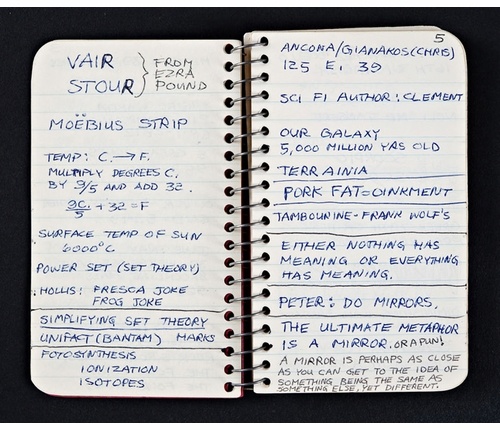 VAIR
STOUR
FROM
EZRA
POUND
MOËBIUS STRIP
TEMP: C. → F.
MULTIPLY DEGREES C.
BY 9/5 AND ADD 32.
9C./5 + 32 = F
SURFACE TEMP OF SUN
6000°C
POWER SET (SET THEORY)
HOLLIS: FRESCA JOKE
FROG JOKE
SIMPLIFYING SET THEORY
UNIFACT (BANTAM) MARKS
FOTOSYNTHESIS
IONIZATION
ISOTOPES
5
ANCONA/GIANAKOS (CHRIS)
125 E. 39
SCI FI AUTHOR: CLEMENT
OUR GALAXY
5,000 MILLION YRS OLD
TERRAINIA
PORK FAT = OINKMENT
TAMBOURINE - FRANK WOLF'S
EITHER NOTHING HAS
MEANING OR EVERYTHING
HAS MEANING.
PETER: DO MIRRORS.
THE ULTIMATE METAPHOR
IS A MIRROR. OR A PUN!
A MIRROR IS PERHAPS AS CLOSE
AS YOU CAN GET TO THE IDEA OF
SOMETHING BEING THE SAME AS
SOMETHING ELSE, YET DIFFERENT.